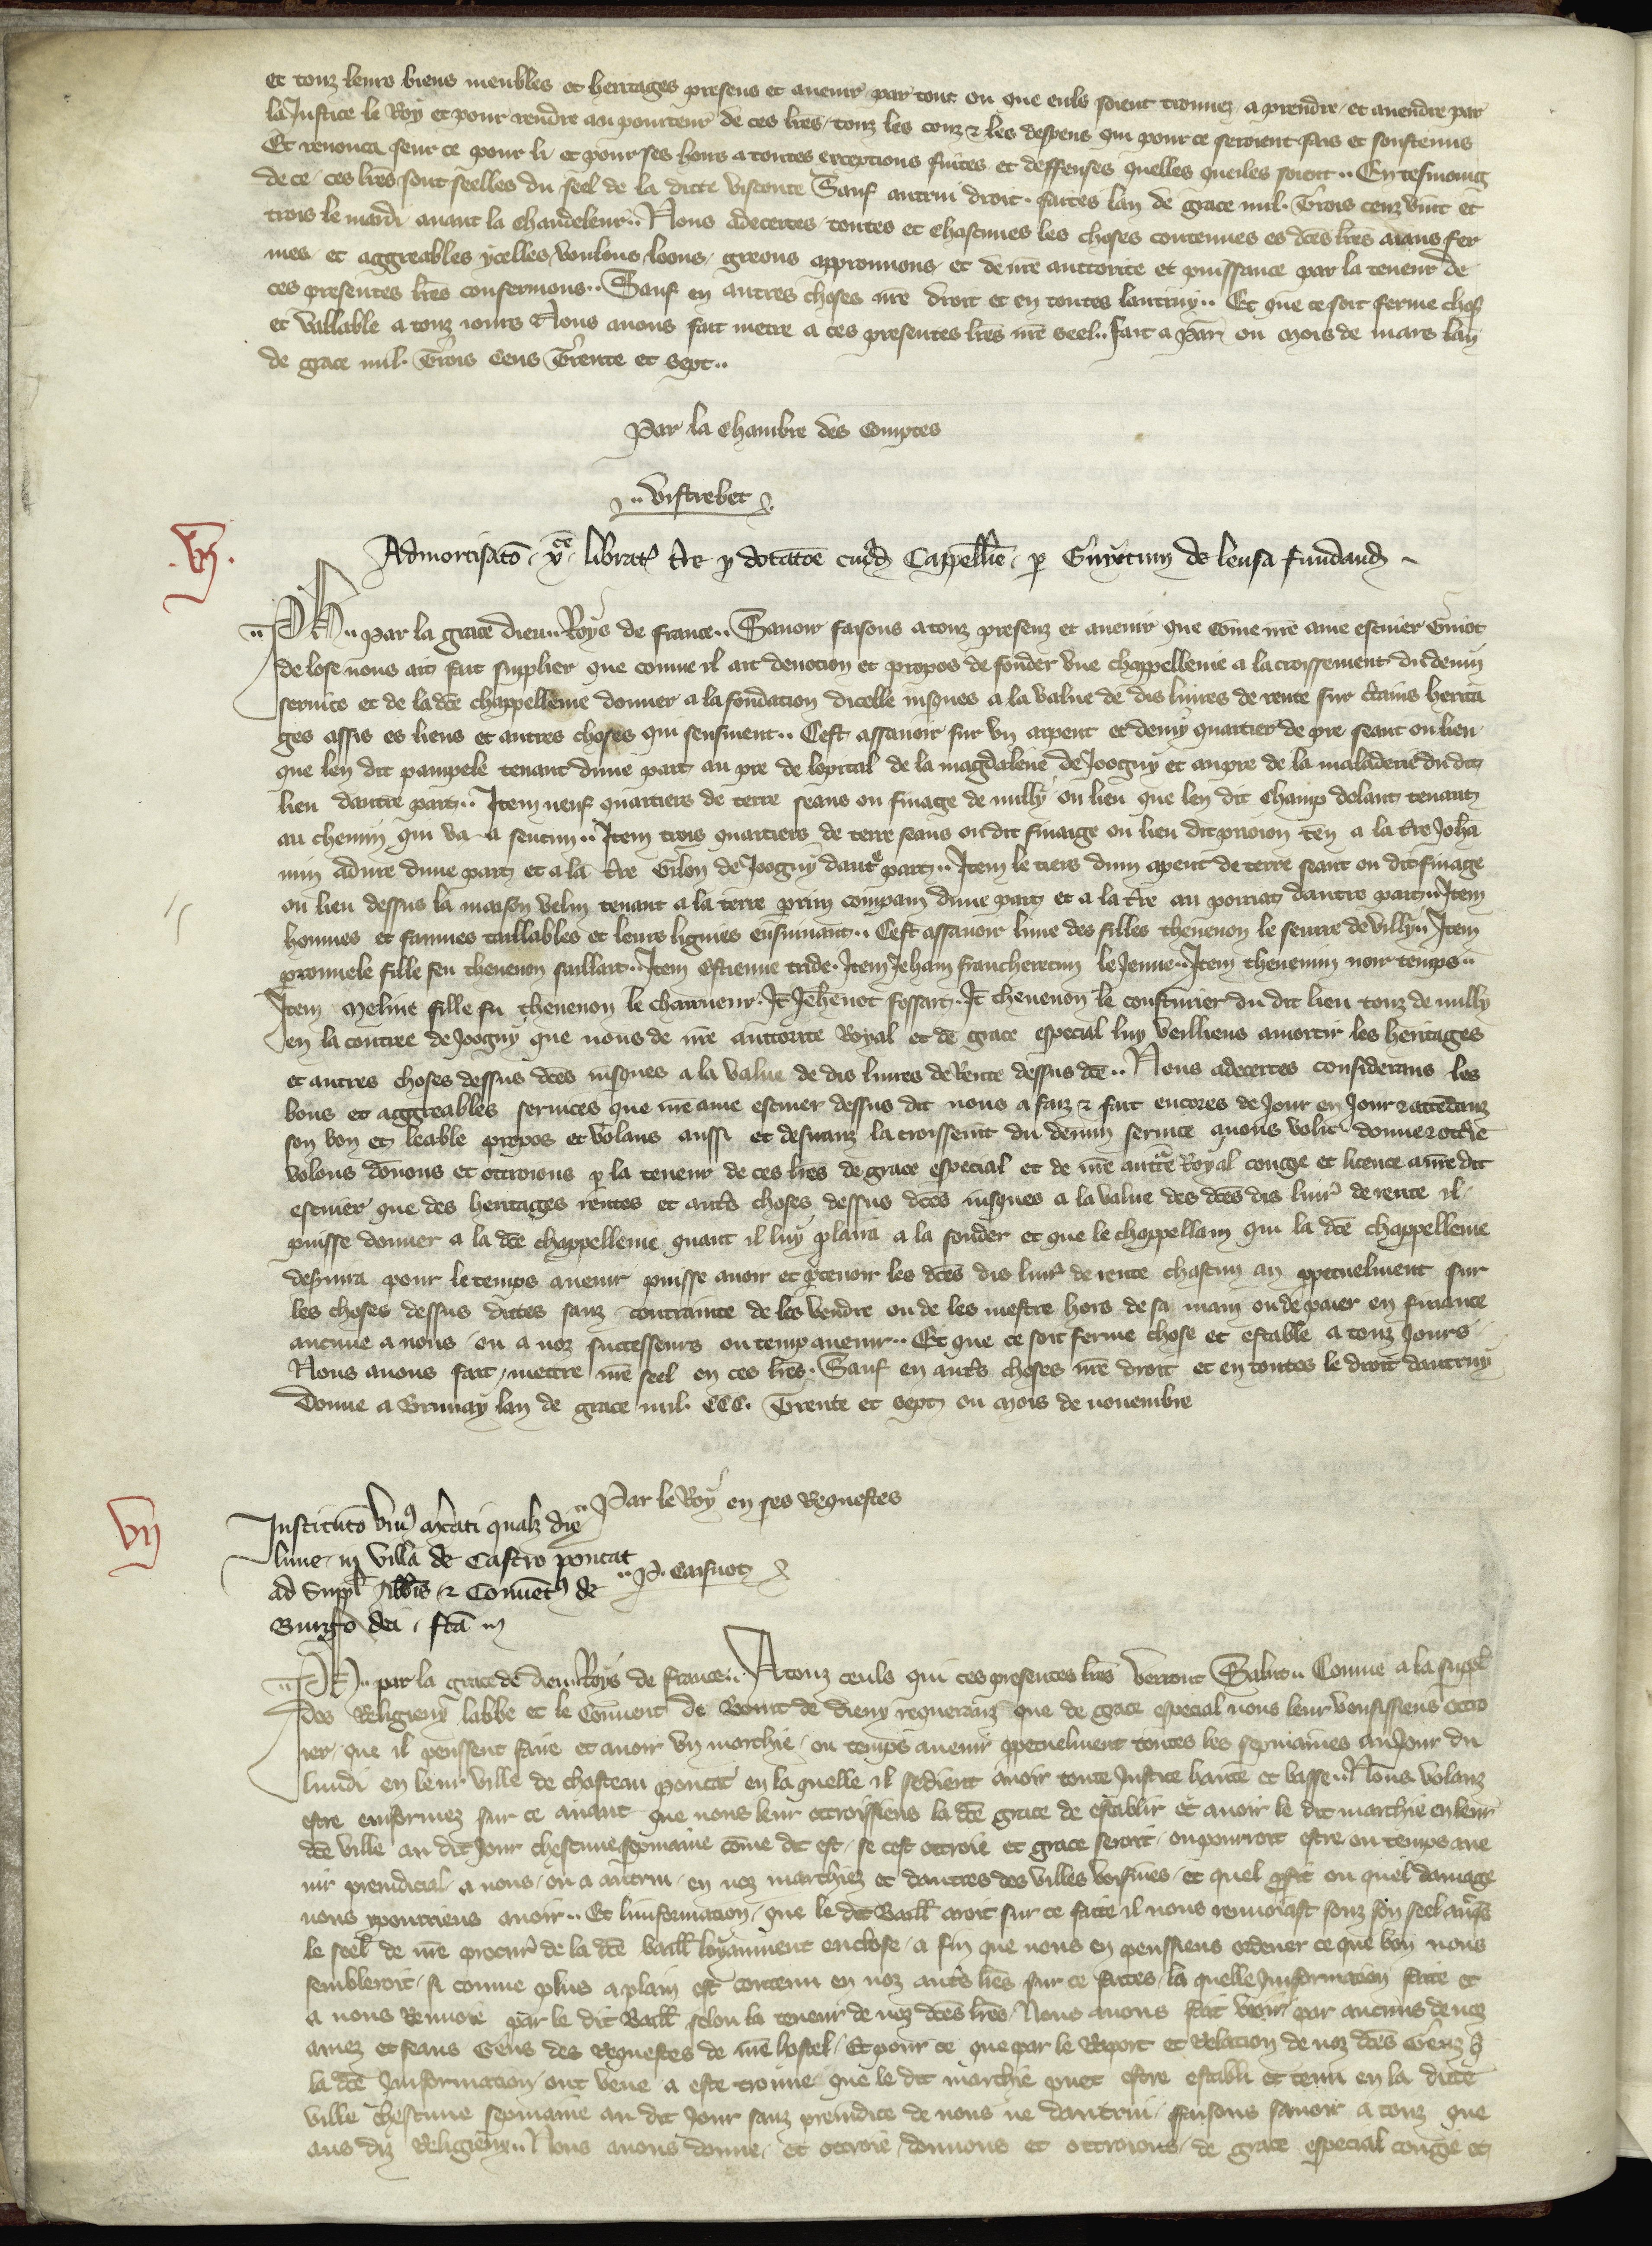 et touz leurs biens meubles et heritages presens et auenir par tout ou que eulz soient trouuez a prendre et auendre par
la Justice le Roy et pour rendre au pourteur de ces lres touz les couz & les despens qui pour ce seroient fais et soustenus
Et renonca seur ce pour li et pour ses hoirs a toutes exceptions fuites et deffenses quelles queiles soient .. En tesmoing
de ce ces lres sont seelles du seel de la dicte visconte Sauf autrui droit . faites lan de grace mil . Trois cenz vint et
trois le mardi auant la chandeleur .. Nous adecertes toutes et chascunes les choses contenues es dces lres aians fer
mes et aggreables ycelles voulons loons greons approuuons et de nre auctorite et puissance par la teneur de
ces presentes lres confermons .. Sauf en autres choses nre droit et en toutes lautruy .. Et que ce soit ferme chose
et vallable a touz iours Nous auons fait metre a ces presentes lres nre seel .. fait a Par ou mois de mars lan
de grace mil . Trois cens Trente et sept ..
Par la chambre des comptes
.. vistrebet
.vj.
Admortisato xce librat tre p dotatoe cuid Cappellie p Guyotum de leusa fundand
.. Ph .. par la grace dieu .. Roys de france .. Sauoir faisons a touz presenz et auenir que come nre ame escuier Guiot
de lose nous ait fait supplier que comme il ait deuocion et propos de fonder vne chappellenie a lacroissement du deuin
seruice et de la dce chappellenie donner a la fondacion dicelle iusques a la value de dis liures de rente sur ctains herita
ges assis es lieus et autres choses qui sensuient .. Cest assauoir sur vn arpent et demy quartier de pre seant ou lieu
que len dit pampele tenant dune part au pre de lopital de la magdalene de Joogny et aupre de la maladerie du dit
lieu dautre part .. Item neuf quartiers de terre seans ou finage de nully ou lieu que len dit champ dolant tenant
au chemin qui va a sentun .. Item trois quartiers de terre seans ou dit finaige ou lieu dit proion ten a la tre Joha
nin adure dune part et a la tre Gilon de Joogny daute part .. Item le tiers dun apent de terre seant ou dit finage
ou lieu dessus la maison velin tenant a la terre prin compain dune part et a la tre au porriat dautre part .. Item
hommes et fammes taillables et leurs lignies ensuiuant .. Cest assauoir lune des filles theuenon le seurre de villy .. Item
pronuele fille feu theuenon faillart .. Item estienne tride . Item Jehan francheretun le Jenne .. Item theuenin noir temps ..
Item meline fille fu theuenon le charrueur . It Jehenot fossart . It theuenon le cousturier du dit lieu touz de nully
en la contree de Joogny que nous de nre auctorite Royal et de grace especial luy veilliens amortir les heritages
et autres choses dessus dces iusques a la value de dis liures de Rente dessus dce .. Nous adecertes considerans les
bons et aggreables seruices que nre ame escuier dessus dit nous a faiz & fait encores de Jour en Jour & attendanz
son bon et leable propos et volans aussi et desiranz lacroissemt du deuin seruice auons volu donne & ottrie
volons donons et ottroions p la teneur de ces lres de grace especial et de nre aucte Royal conge et licence a nre dit
escuier que des heritages rentes et auts choses dessus dces iusques a la value des dces dis liur de rente il
puisse donner a la dce chappellenie quant il luy plaira a la fonder et que le chappellain qui la dce chappellenie
desruira pour le temps auenir puisse auoir et pceuoir les dces dis liur de rente chascun an ppetuelment sur
les choses dessus dictes sanz contrainte de les vendre ou de les mestre hors de sa main ou de paier en finance
aucune a nous ou a noz successeurs ou temp auenir .. Et que ce soit ferme chose et estable a touz Jours
Nous auons fait mettre nre seel en ces lres . Sauf en auts choses nre droit et en toutes le droit dautruy
Donne a Brunay lan de grace mil . CCC . Trente et sept ou mois de nouembre
.. Par le Roy en ses Requestes
vij
Instituto vni mcati qualz die
lune in villa de Castro poncat
ad suppl Abbis & Conuet de
Burgo dei . fta
.. P. Caisnot
.. Ph .. par la grace de dieu Roys de france .. A touz ceuls qui ces presentes lres verront Salut .. Comme a la suppl
des Religieux labbe et le Conuent de Bourt de dieux requerranz que de grace especial nous leur vousissiens ottro
ier que il peussent faire et auoir vn marchie ou temps auenir ppetuelment toutes les sepmaines au Jour du
lundi en leur ville de chasteau poncat en la quelle il sedient auoir toute Justice haute et basse .. Nous volanz
estre enformez sur ce auant que nous leur ottroissiens la dce grace de establir et auoir le dit marchie en leur
dce ville au dit Jour chescune sepmaine come dit est se cest ottroie et grace seroit ou pourroit estre ou temps aue
nir preiudicial a nous ou a autrui en noz marchiez et dautres des villes voisines et quel pfit ou quel damage
nous ypourriens auoir .. Et linformacion que le dit Baill auroit sur ce faite il nous renuoiast souz son seel aups
le seel de nre procur de la dce baill loyaument enclose a fin que nous en peussiens ordener ce que bon nous
sembleroit si comme plus aplain est contenu en noz auts lres sur ce faites la quelle Jnformacion faite et
a nous Renuoie par le dit Baill selon la teneur de noz dces lres Nous auons fait veoir par aucuns de noz
amez et feaus Gens des Requestes de nre hostel Et pour ce que par le Raport et Relacion de noz dces Genz q
la dce Jnformacion ont veue a este trouue que le dit marchie puet estre establi et tenu en la dicte
ville chescune sepmaine au dit Jour sanz preiudice de nous ne dautrui faisons sauoir a touz que
aus diz Religieux .. Nous auons donne et ottroie donnons et ottroions de grace especial conge et